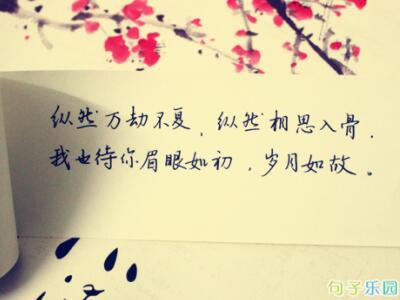 纵然万劫不复，纵然相思入骨，
我也待你眉眼如初，岁月如故。
句子乐园